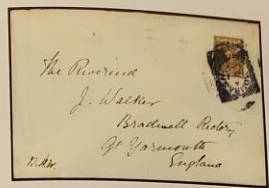 The Reverend
J. Walker
Bradwell Rectory
Gt Yarmouth
England